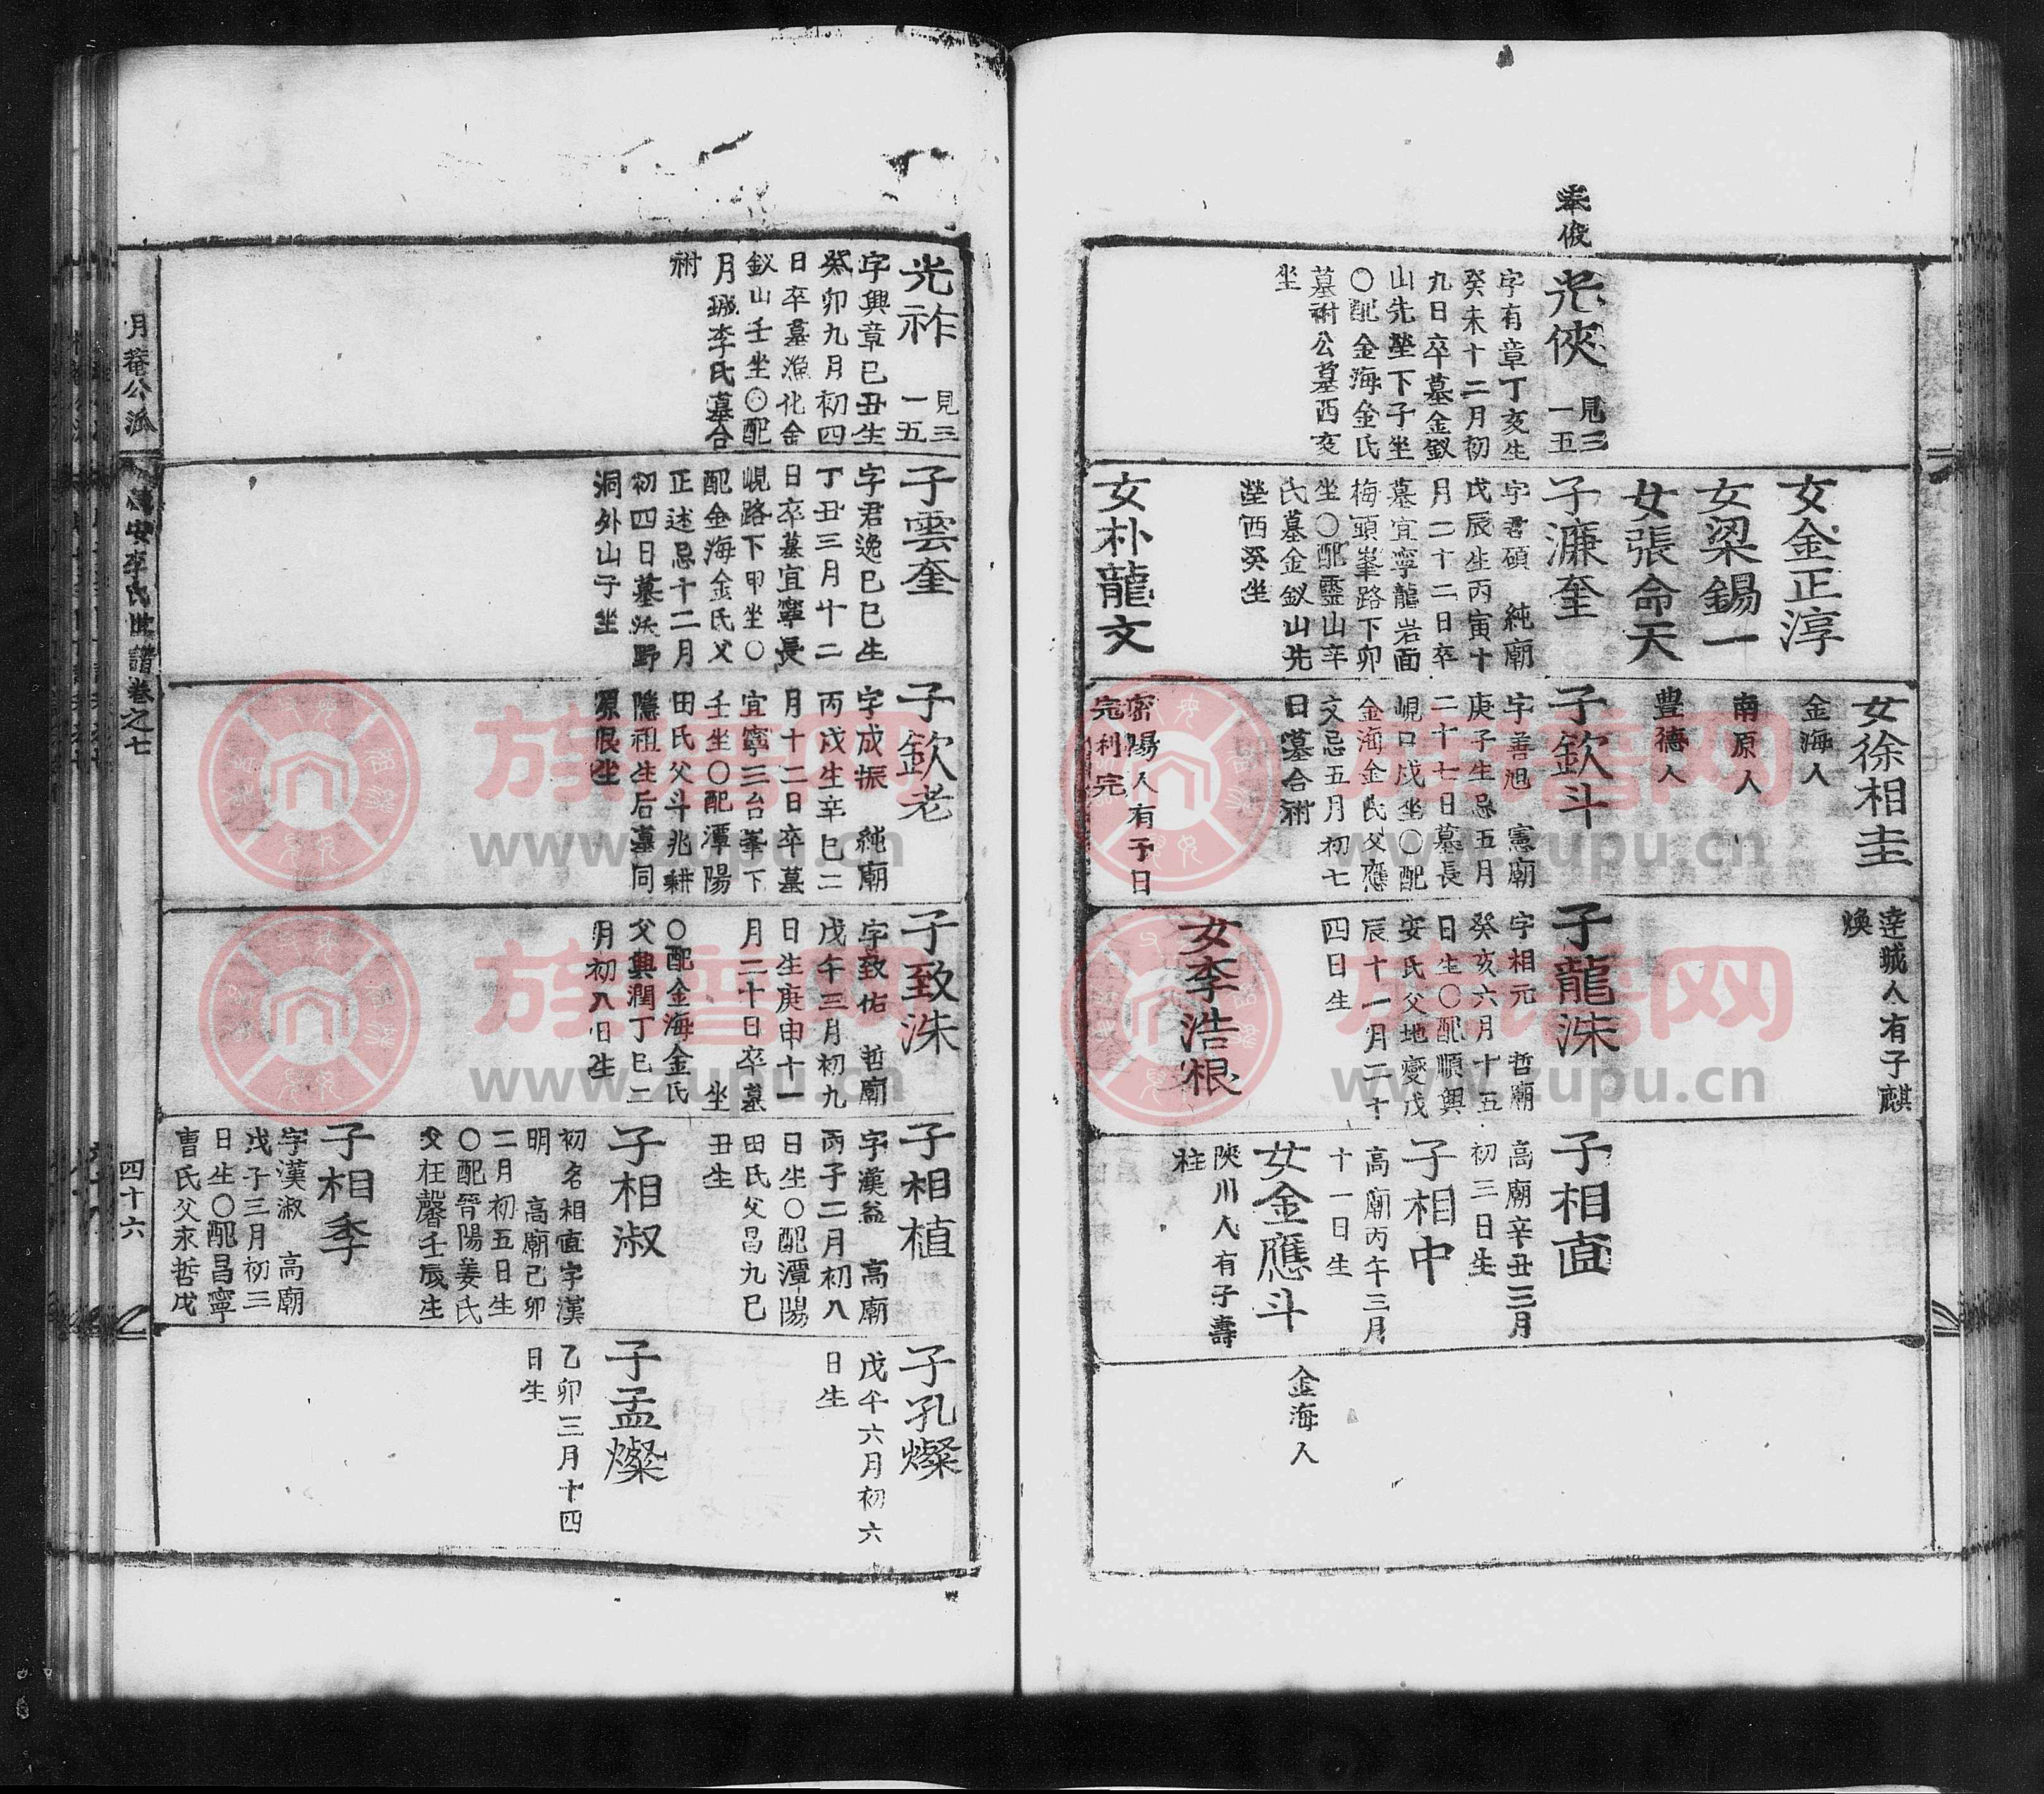 光俠 見三一五
字有章丁亥生
癸未十二月初
九日卒墓金釵
山先塋下子坐
〇配金海金氏
墓祔公墓西亥
坐
女金正淳
女梁錫一
女張命天
子濂奎
字君碩 純廟
戊辰生丙寅十
月二十二日卒
墓宜寧龍岩面
梅頭峯路下卯
坐〇配靈山辛
氏墓金釵山先
塋酉癸坐
女朴龍文
女徐相圭
金海人
南原人
豊德人
子欽斗
字善旭 憲廟
庚子生忌五月
二十七日墓長
峴口戌坐〇配
金海金氏父應
文忌五月初七
日墓合祔
密陽人有子日
完利完
達城人有子麒
煥
子龍洙
字相元 哲廟
癸亥六月十五
日生〇配順興
安氏父地變戊
辰十一月二十
四日生
女李浩根
子相直
高廟辛丑三月
初三日生
子相中
高廟丙午三月
十一日生
女金應斗
陜川人有子壽
柱
金海人
光祚 見三一五
字興章已丑生
癸卯九月初四
日卒墓漁化金
釵山壬坐〇配
月城李氏墓合
祔
子雲奎
字君逸已巳生
丁丑三月十二
日卒墓宜寧長
峴路下甲坐〇
配金海金氏父
正述忌十二月
初四日墓沃野
洞外山子坐
子欽老
字成振 純廟
丙戌生辛巳二
月十二日卒墓
宜寧三台峯下
壬坐〇配潭陽
田氏父斗兆耕
隱祖生后墓同
原艮坐
子致洙
字致佑 哲廟
戊午三月初九
日生庚申十一
月二十日卒墓
坐
〇配金海金氏
父興潤丁巳二
月初八日生
子相植
字漢益 高廟
丙子二月初八
日生〇配潭陽
田氏父昌九巳
丑生
子相淑
初名相宙字漢
明 高廟己卯
二月初五日生
〇配晉陽姜氏
父枉馨壬辰生
子相季
字漢淑 高廟
戊子三月初三
日生〇配昌寧
曺氏父永哲戊
子孔燦
戊午六月初六
日生
子孟燦
乙卯三月十四
日生
月菴公派
李氏世譜卷之七
四十六
族譜网
www.zupu.cn
族譜网
www.zupu.cn
族譜网
www.zupu.cn
族譜网
www.zupu.cn